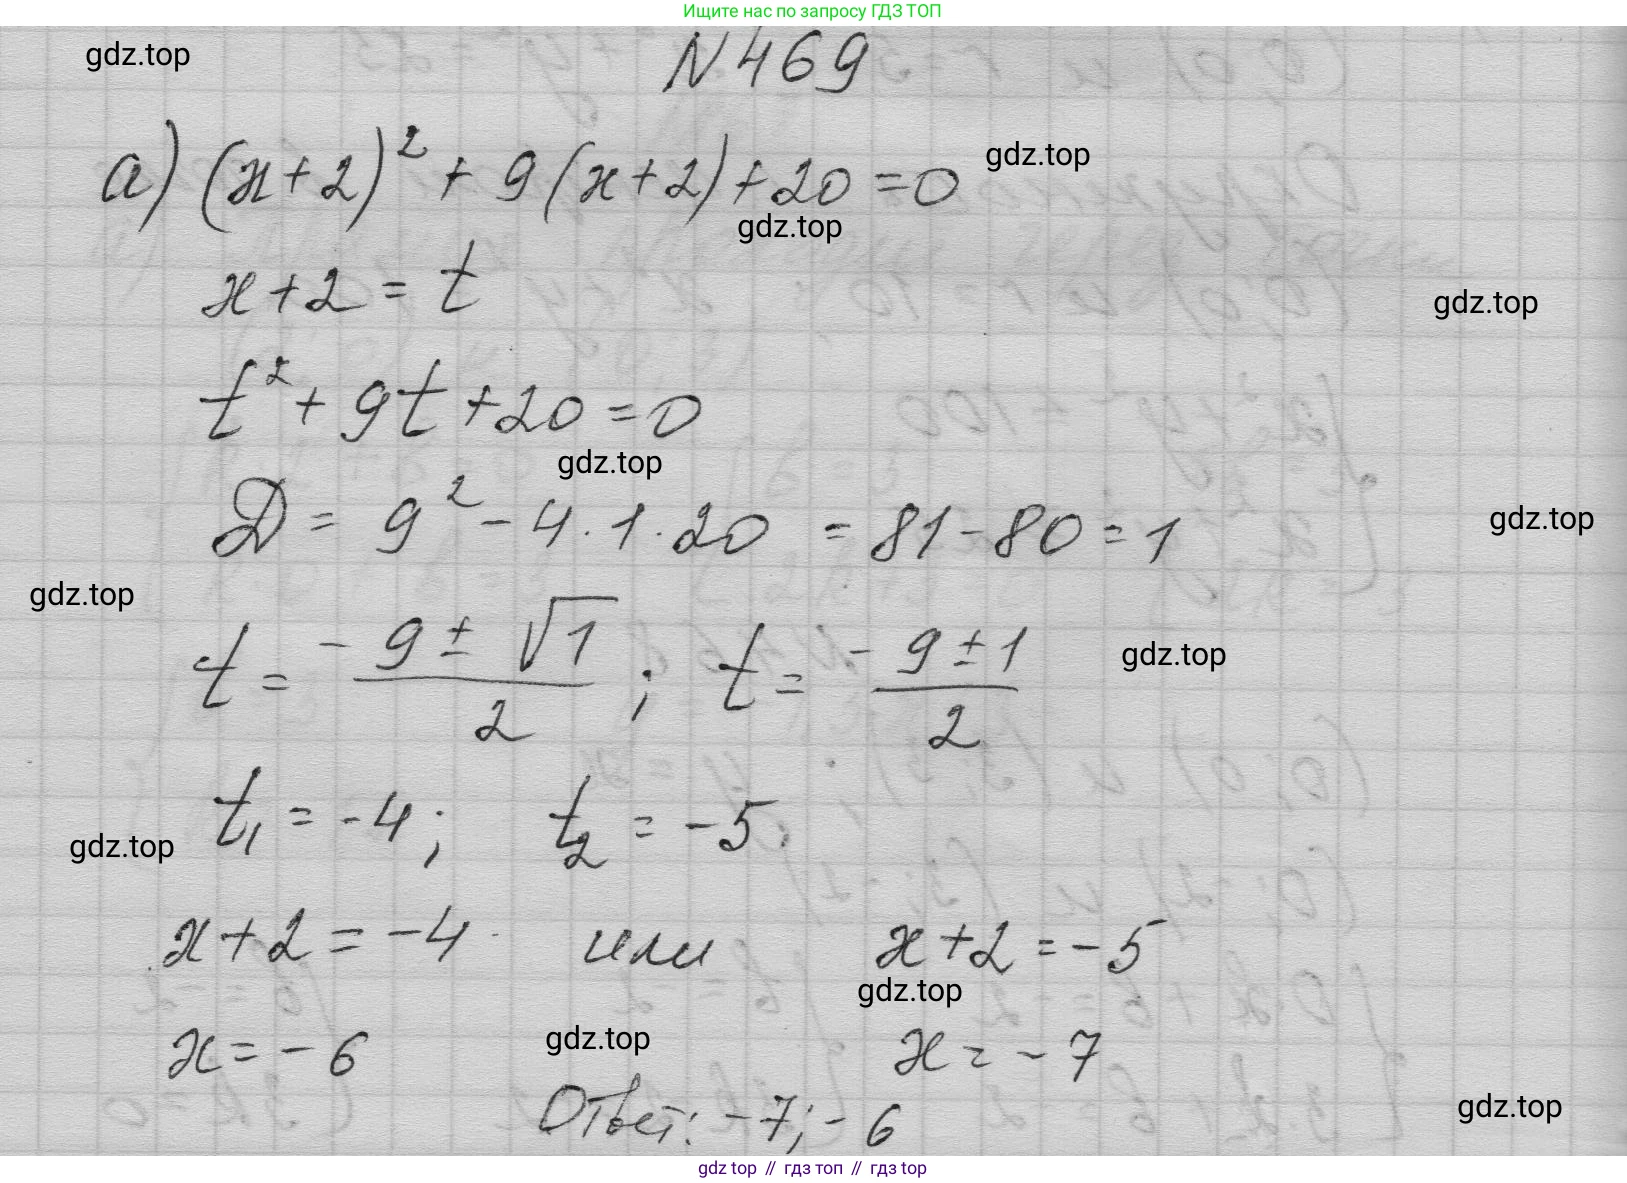 Ищите нас по запросу ГДЗ ТОП
gdz.top
N 469
а) (x+2)² + 9(x+2) + 20 = 0
gdz.top
gdz.top
x+2 = t
gdz.top
t² + 9t + 20 = 0
gdz.top
Д = 9² - 4·1·20 = 81 - 80 = 1
gdz.top
gdz.top
t = (-9 ± √1)/2 ; t = (-9 ± 1)/2
gdz.top
t₁ = -4; t₂ = -5
gdz.top
x+2 = -4 или x+2 = -5
gdz.top
x = -6 x = -7
gdz.top
Ответ: -7; -6
gdz.top
gdz top // гдз топ // гдз top